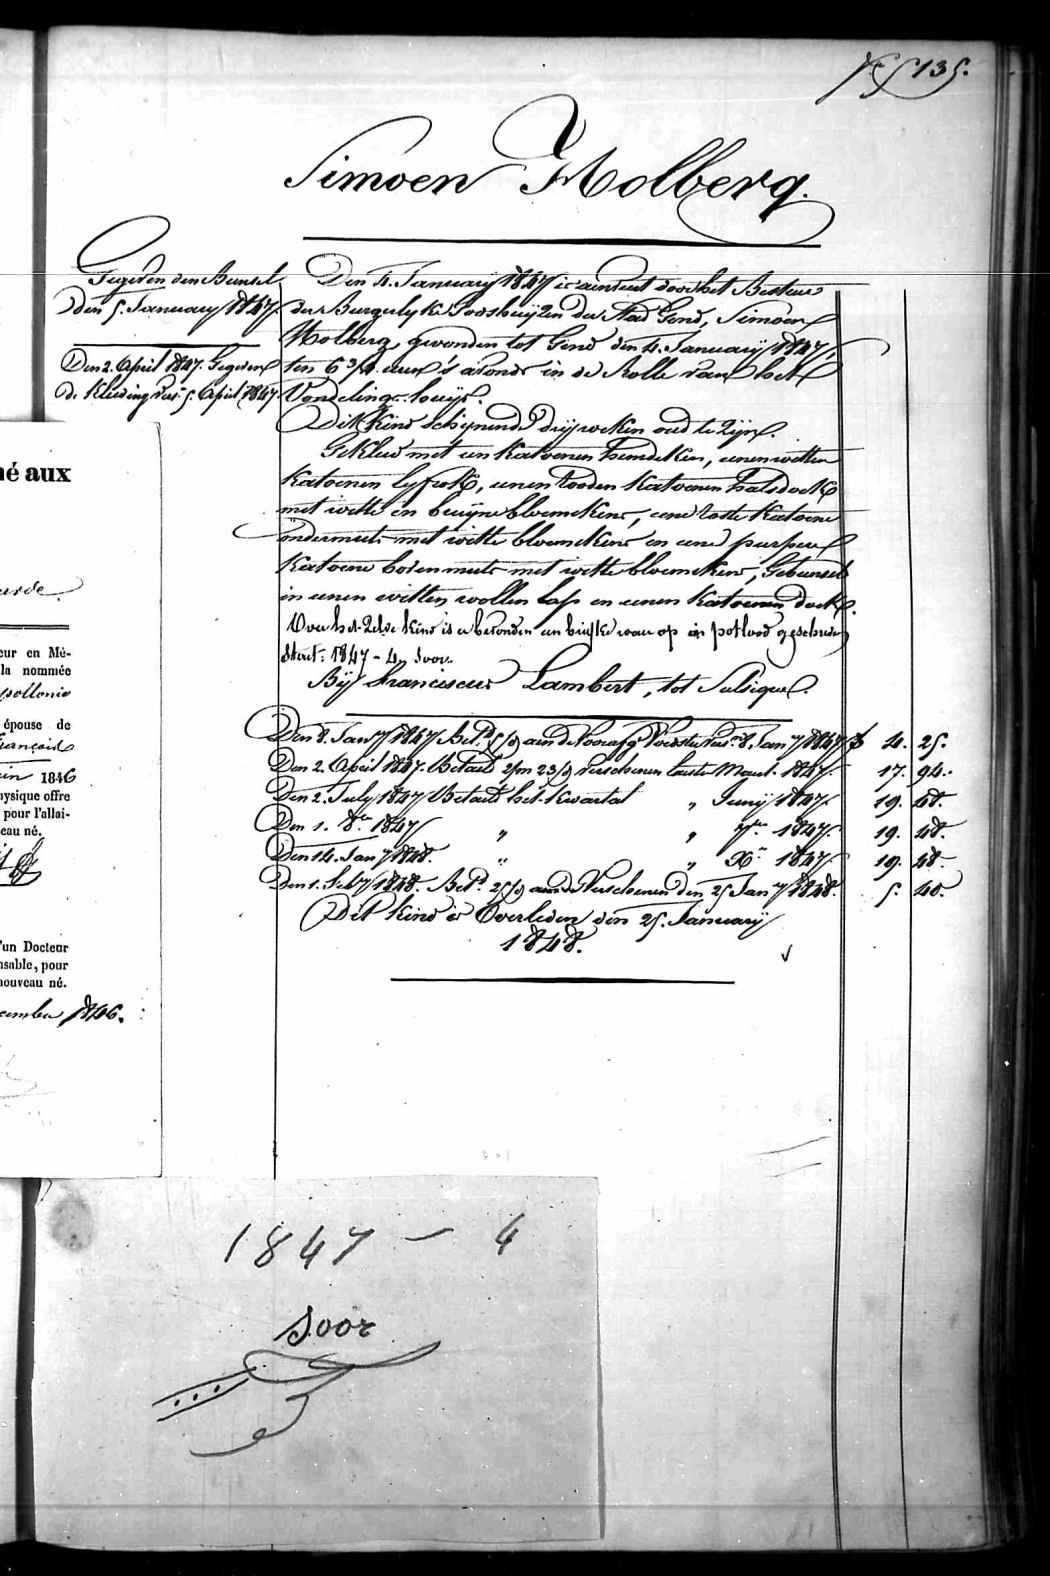 135.
Simoen Holberg.
Gegeven den Bunsel
Den 5. January 1847.
Den 2. April 1847. Gegeven
de Kleeding vers. 5. April 1847.
Den 4. January 1847 is aenveert door het Bestier
der Burgerlyke Godshuyzen der Stad Gend, Simoen
Holberg, gevonden tot Gend den 4. January 1847,
ten 6 3/4 uren 's avonds in de Rolle van het
Vondelinge-huys.
Dit Kind schynende dry weken oud te zyn.
Gekleed met een Katoenen hemdeken, eenen witten
Katoenen lyfrok, eenen rooden Katoenen halsdoek
met witte en bruyne bloemekens, eene roste Katoene
ondermuts met witte bloemekens en eene purpere
Katoene bovenmuts met witte bloemekens, Gebunseld
in eenen witten wollen lap en eenen Katoenen doek.
Over het zelve kind is er bevonden een briefke waer op in potlood geschreven
staet: 1847 - 4 soor.
By Franciscus Lambert, tot Sulsique.
Den 8. Jany 1847 Bet.d aen de Voedster 8. Jany 1847 4. 25.
Den 2. April 1847. Betaeld 2/m 23/d verschenen laeste Maert 1847. 17. 94.
Den 2. July 1847 Betaeld het Kwartael " Juny 1847. 19. 48.
Den 1. 8.re 1847 " " 7.re 1847. 19. 48.
Den 14. Jany 1848. " " X.re 1847. 19. 48.
Den 1. Feby 1848. Bet.d 25/d aen de Verschenen den 25 Jany 1848. 5. 40.
Dit kind is Overleden den 25. January
1848.
né aux
eur en Mé-
la nommée
pollonie
épouse de
François
uin 1846
hysique offre
pour l'allai-
eau né.
'un Docteur
nsable, pour
nouveau né.
cembre 1846.
1847 - 4
soor